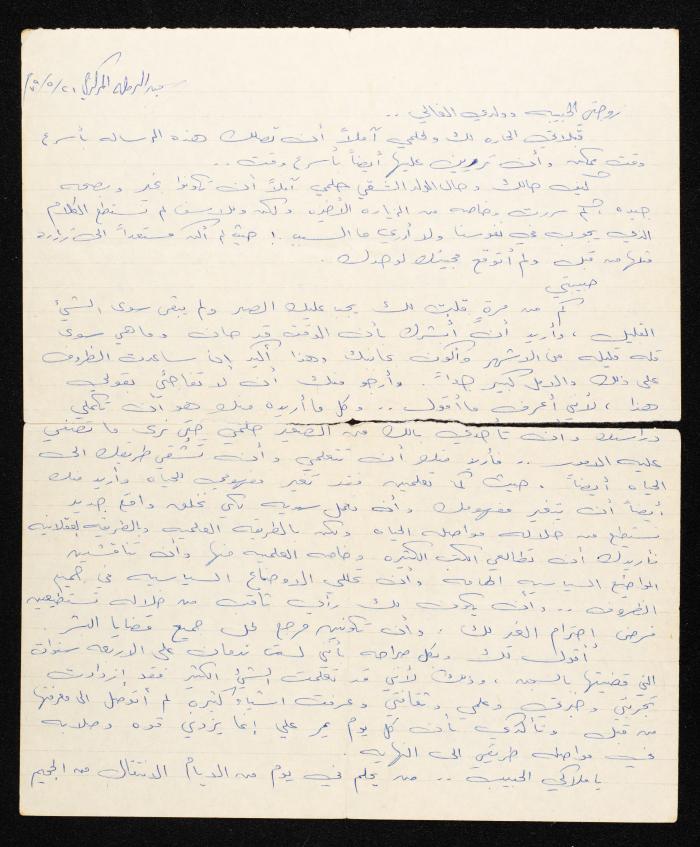 سجن الرملة المركزي ٢١/٥/٧٩
زوجتي الحبيبه وولدي الغالي ..
قبلاتي الحاره لك ولحلمي آملاً أن تصلك هذه الرساله بأسرع
وقت ممكن وأن تردين عليها أيضاً بأسرع وقت ..
كيف حالك وحال الولد الشقي حلمي آملاً أن تكونوا بخير وبصحه
جيده، كم سررت وخاصه من الزياره الأخيره ولكن وللأسف لم نستطع الكلام
الذي يجول في نفوسنا ولا أدري ما السبب .! حيث لم أكن مستعداً الى زيارة
مثلها من قبل ولم أتوقع مجيئك لوحدك .
حبيبتي
كم من مرة قلت لك يجب عليك الصبر ولم يبقى سوى الشيئ
القليل ، وأريد أن أبشرك بأن الوقت قد حان وما هي سوى
قله قليله من الاشهر وأكون بجانبك وهذا أكيد إن ساعدت الظروف
على ذلك والامل كبير جداً . وأرجو منك أن لا تفاجئي بقولي
هذا ، لأنني أعرف ما أقول .. وكل ما أريده منك هو أن تكملي
دراستك وأن تأخذي بالك من الصغير حلمي حتى نرى ما تصبحي
عليه الامور .. فأريد منك أن تتعلمي وأن تشقي طريقك الى
الحياه أيضاً . حيث كما تعلمين فقد تغير مفهومي للحياه وأريد منك
أيضاً أن يتغير مفهومك وأن نعمل سويه لكي نخلق واقع جديد
نستطيع من خلاله مواصله الحياه ولكن بالطريقه العلميه والطريقه العقلانيه
فأريدك أن تطالعي الكتب الكثيره وخاصه العلميه منها وأن تناقشين
المواضيع السياسيه الهامه وأن تحللي الاوضاع السياسيه في جميع
الظروف .. وأن يكون لك رأي ثاقب من خلاله تستطيعين
فرض إحترام الغير لك . وأن تكونين مرجع لحل جميع قضايا البشر .
أقول لك وبكل صراحه بأنني لست ندمان على الاربعه سنوات
التي قضيتها بالسجن ، وذلك لأنني قد تعلمت الشيئ الكثير فقد إزدادت
تجربتي وخبرتي وعلمي وثقافتي وعرفت اشياء كثيره لم أتوصل الى معرفتها
من قبل وتأكدي بأن كل يوم يمر علي إنما يزدني قوه وصلابه
في مواصله طريقي الى النهايه .
يا ملاكي الحبيب .. من يحلم في يوم من الايام الانتقال من الجحيم